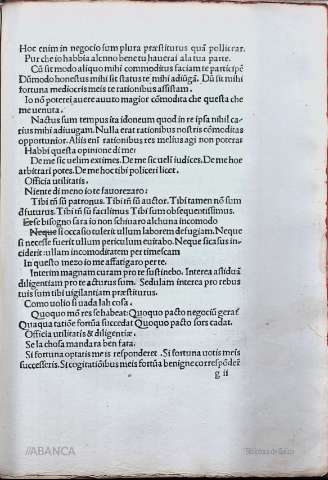 Hoc enim in negocio sum plura præstiturus quā pollicear.
Pur che io habbia alcuno bene tu hauerai ala tua parte.
Cū sit modo aliquo mihi commoditus faciam te participē
Dūmodo honestus mihi sit status te mihi adiūgā. Dū sit mihi
fortuna mediocris meis te rationibus assistam.
Io nō poterei auere auuto magior cōmodita che questa che
me uenuta.
Nactus sum tempus ita idoneum quod in re ipsa nihil ca-
rius mihi adiuugam. Nulla erat rationibus nostris cōmoditas
opportunior. Aliis enī rationibus res melius agi non poterat
Habbi questa opinione di me:
De me sic uelim extimes. De me sic ueli iudices. De me hoc
arbitrari potes. De me hoc tibi policeri licet.
Officia utilitatis.
Niente di meno io te fauorezaro:
Tibi m̄ sū patronus. Tibi m̄ sū auctor. Tibi tamen nō sum
dfuturus. Tibi m̄ sū facilimus Tibi sum obsequentissimus.
Et se bisogno sara io non schiuaro alchuna incomodo
Neque si occasio tulerit ullum laborem defugiam. Neque
si necesse fuerit ullum periculum euitabo. Neque si casus in-
ciderit ullam incomoditatem pertimescam
In questo mezo io me affatigaro per te.
Interim magnam curam pro te sustinebo. Interea assiduā
diligentiam pro te acturus sum. Sedulam interea pro rebus
tuis sum tibi uigilantiam præstiturus.
Como uolio si uada lah cosa.
Quoquo mō res se habeat: Quoquo pacto negociū geraſ
Quaqua tatiōe fortūa succedat Quoquo pacto sors cadat.
Officia utilitatis & diligentiæ.
Se la chosa mandara ben fata.
Si fortuna optatis meis responderet. Si fortuna uotis meis
successerit. Si cogitatiōibus meis fortūa benigne correspōdeī
g ii
//ABANCA
Biblioteca de Galicia